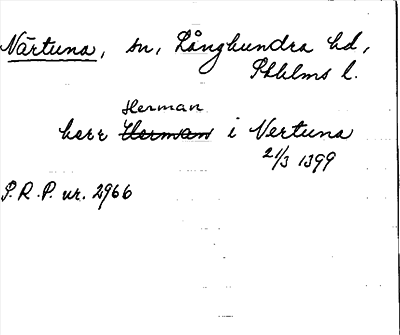 Närtuna, sn, Långhundra hd,
Sthlms l.
Herman
herr Herman i Nertuna
21/3 1399
S.R.P. nr. 2966